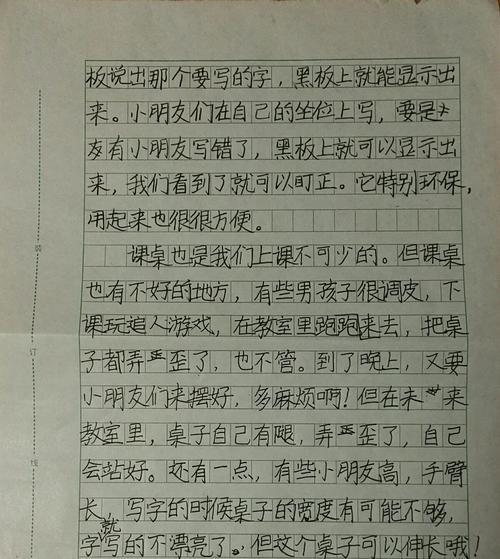 板说出那个要写的字，黑板上就能显示出
来。小朋友们在自己的坐位上写，要是
有小朋友写错了，黑板上就可以显示出
来，我们看到了就可以盯正。它特别环保，
用起来也很很方便。
课桌也是我们上课不可少的。但课桌
也有不好的地方，有些男孩子很调皮，下
课玩追人游戏，在教室里跑跑来去，把桌
子都弄歪了，也不管。到了晚上，又要
小朋友们来摆好，多麻烦啊！但在未来
教室里，桌子自己有腿，弄歪了，自己
会站好。还有一点，有些小朋友高，手臂
长，写字的时候桌子的宽度有可能不够，
就
字写的不漂亮了。但这个桌子可以伸长哦！
装
订
线